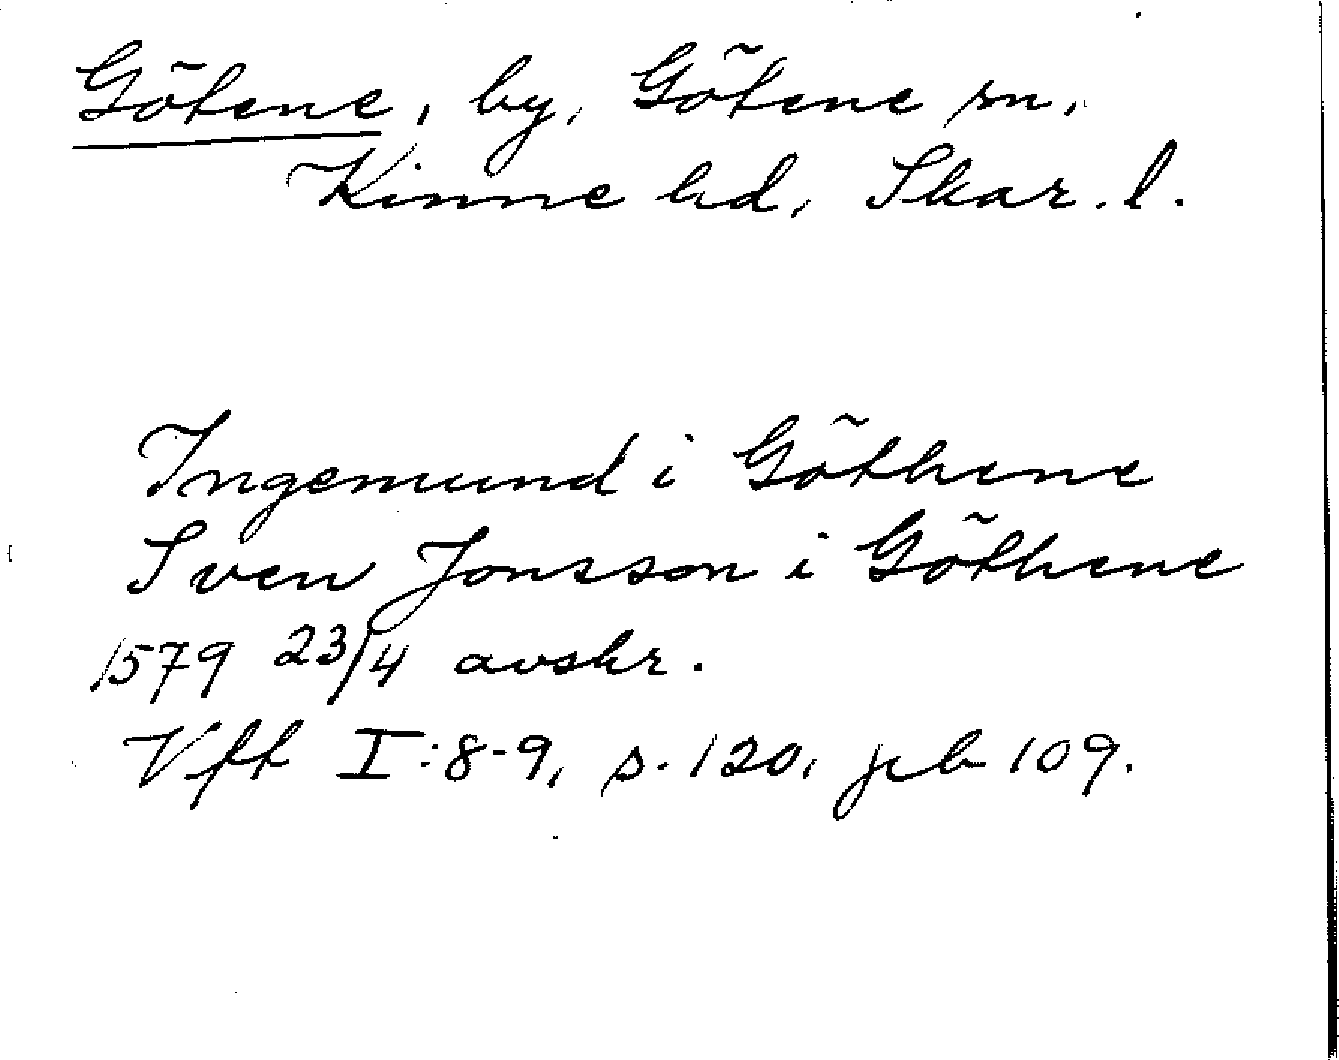 Götene, by, Götene sn,
Kinne hd, Skar. l.
Ingemund i Göthene
Sven Jonsson i Göthene
1579 23/4 avskr.
Vft I:8-9, s. 120, jeb 109.